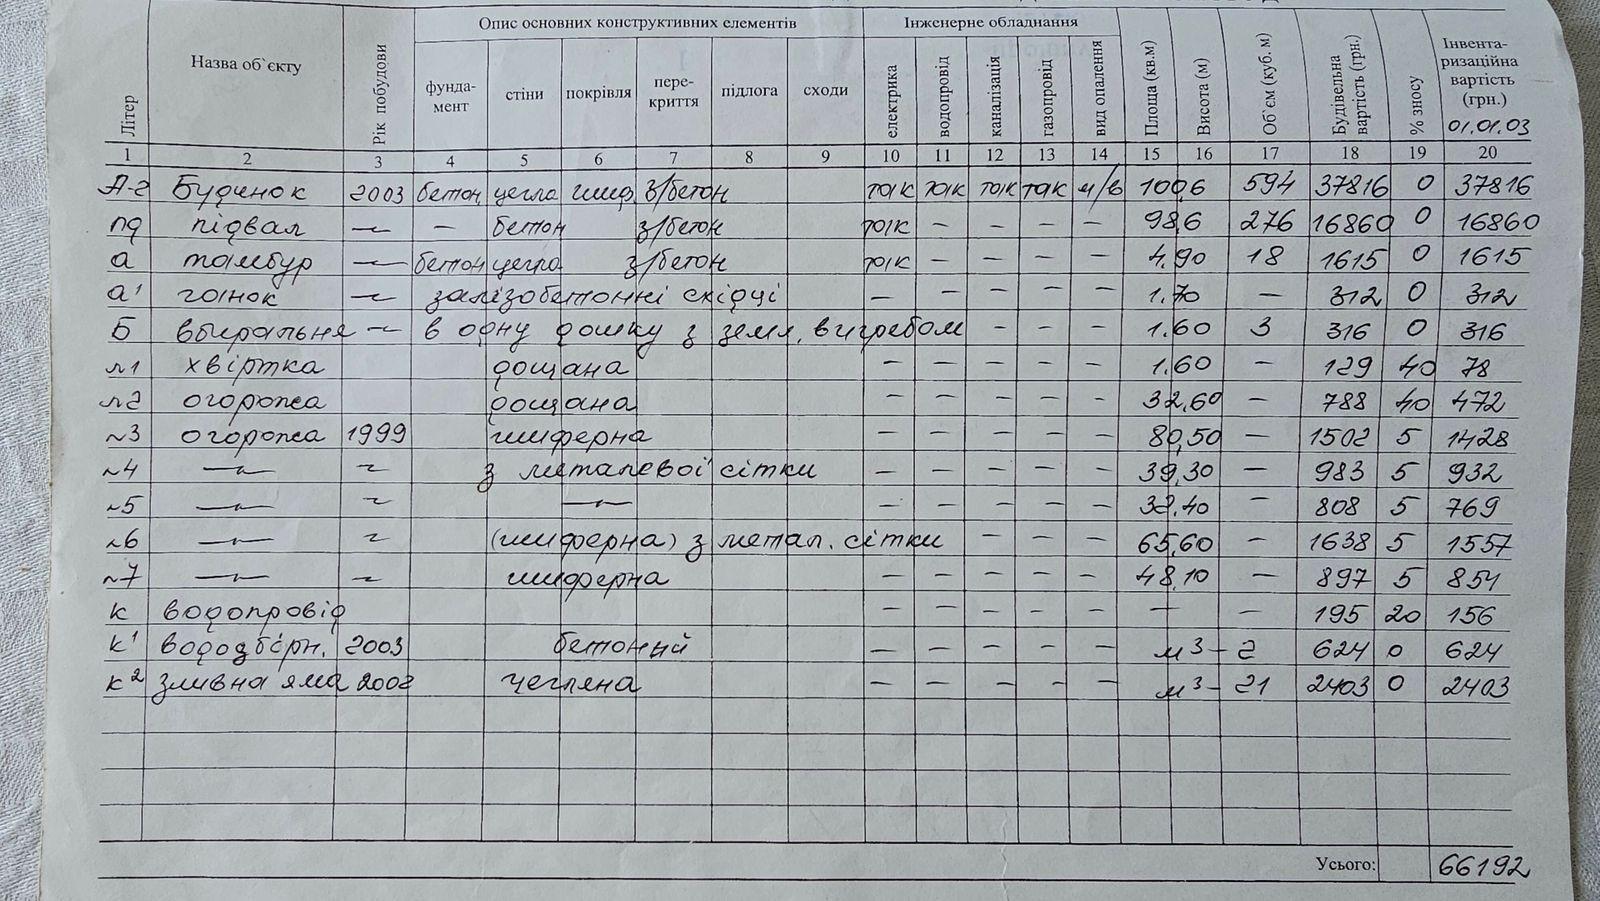 Опис основних конструктивних елементів Інженерне обладнання
Літер Назва об`єкту Рік побудови фунда-мент стіни покрівля пере-криття підлога сходи електрика водопровід каналізація газопровід вид опалення Площа (кв.м) Висота (м) Об`єм (куб. м) Будівельна вартість (грн.) % зносу Інвента-ризаційна вартість (грн.) 01.01.03
1 2 3 4 5 6 7 8 9 10 11 12 13 14 15 16 17 18 19 20
А-2 Будинок 2003 бетон цегла шиф. з/бетон так так так так м/в 100,6 594 37816 0 37816
пд підвал — — бетон з/бетон так — — — — 98,6 276 16860 0 16860
а тамбур — бетон цегла з/бетон так — — — — 4,90 18 1615 0 1615
а¹ ганок — залізобетонні східці — — — — — 1.70 — 312 0 312
Б вбиральня — в одну дошку з земл. вигребом — — — 1.60 3 316 0 316
№1 хвіртка дощана — — — — — 1.60 — 129 40 78
№2 огорожа дощана — — — — — 32,60 — 788 40 472
№3 огорожа 1999 шиферна — — — — — 80,50 — 1502 5 1428
№4 —"— —"— з металевої сітки — — — — — 39,30 — 983 5 932
№5 —"— —"— —"— — — — — — 32,40 — 808 5 769
№6 —"— —"— (шиферна) з метал. сітки — — — 65,60 — 1638 5 1557
№7 —"— —"— шиферна — — — — — 48,10 — 897 5 851
к водопровід — — — — — — — 195 20 156
к¹ водозбірн. 2003 бетонний — — — — — м³ – 2 624 0 624
к² зливна яма 2002 цегляна — — — — — м³ – 21 2403 0 2403
Усього: 66192